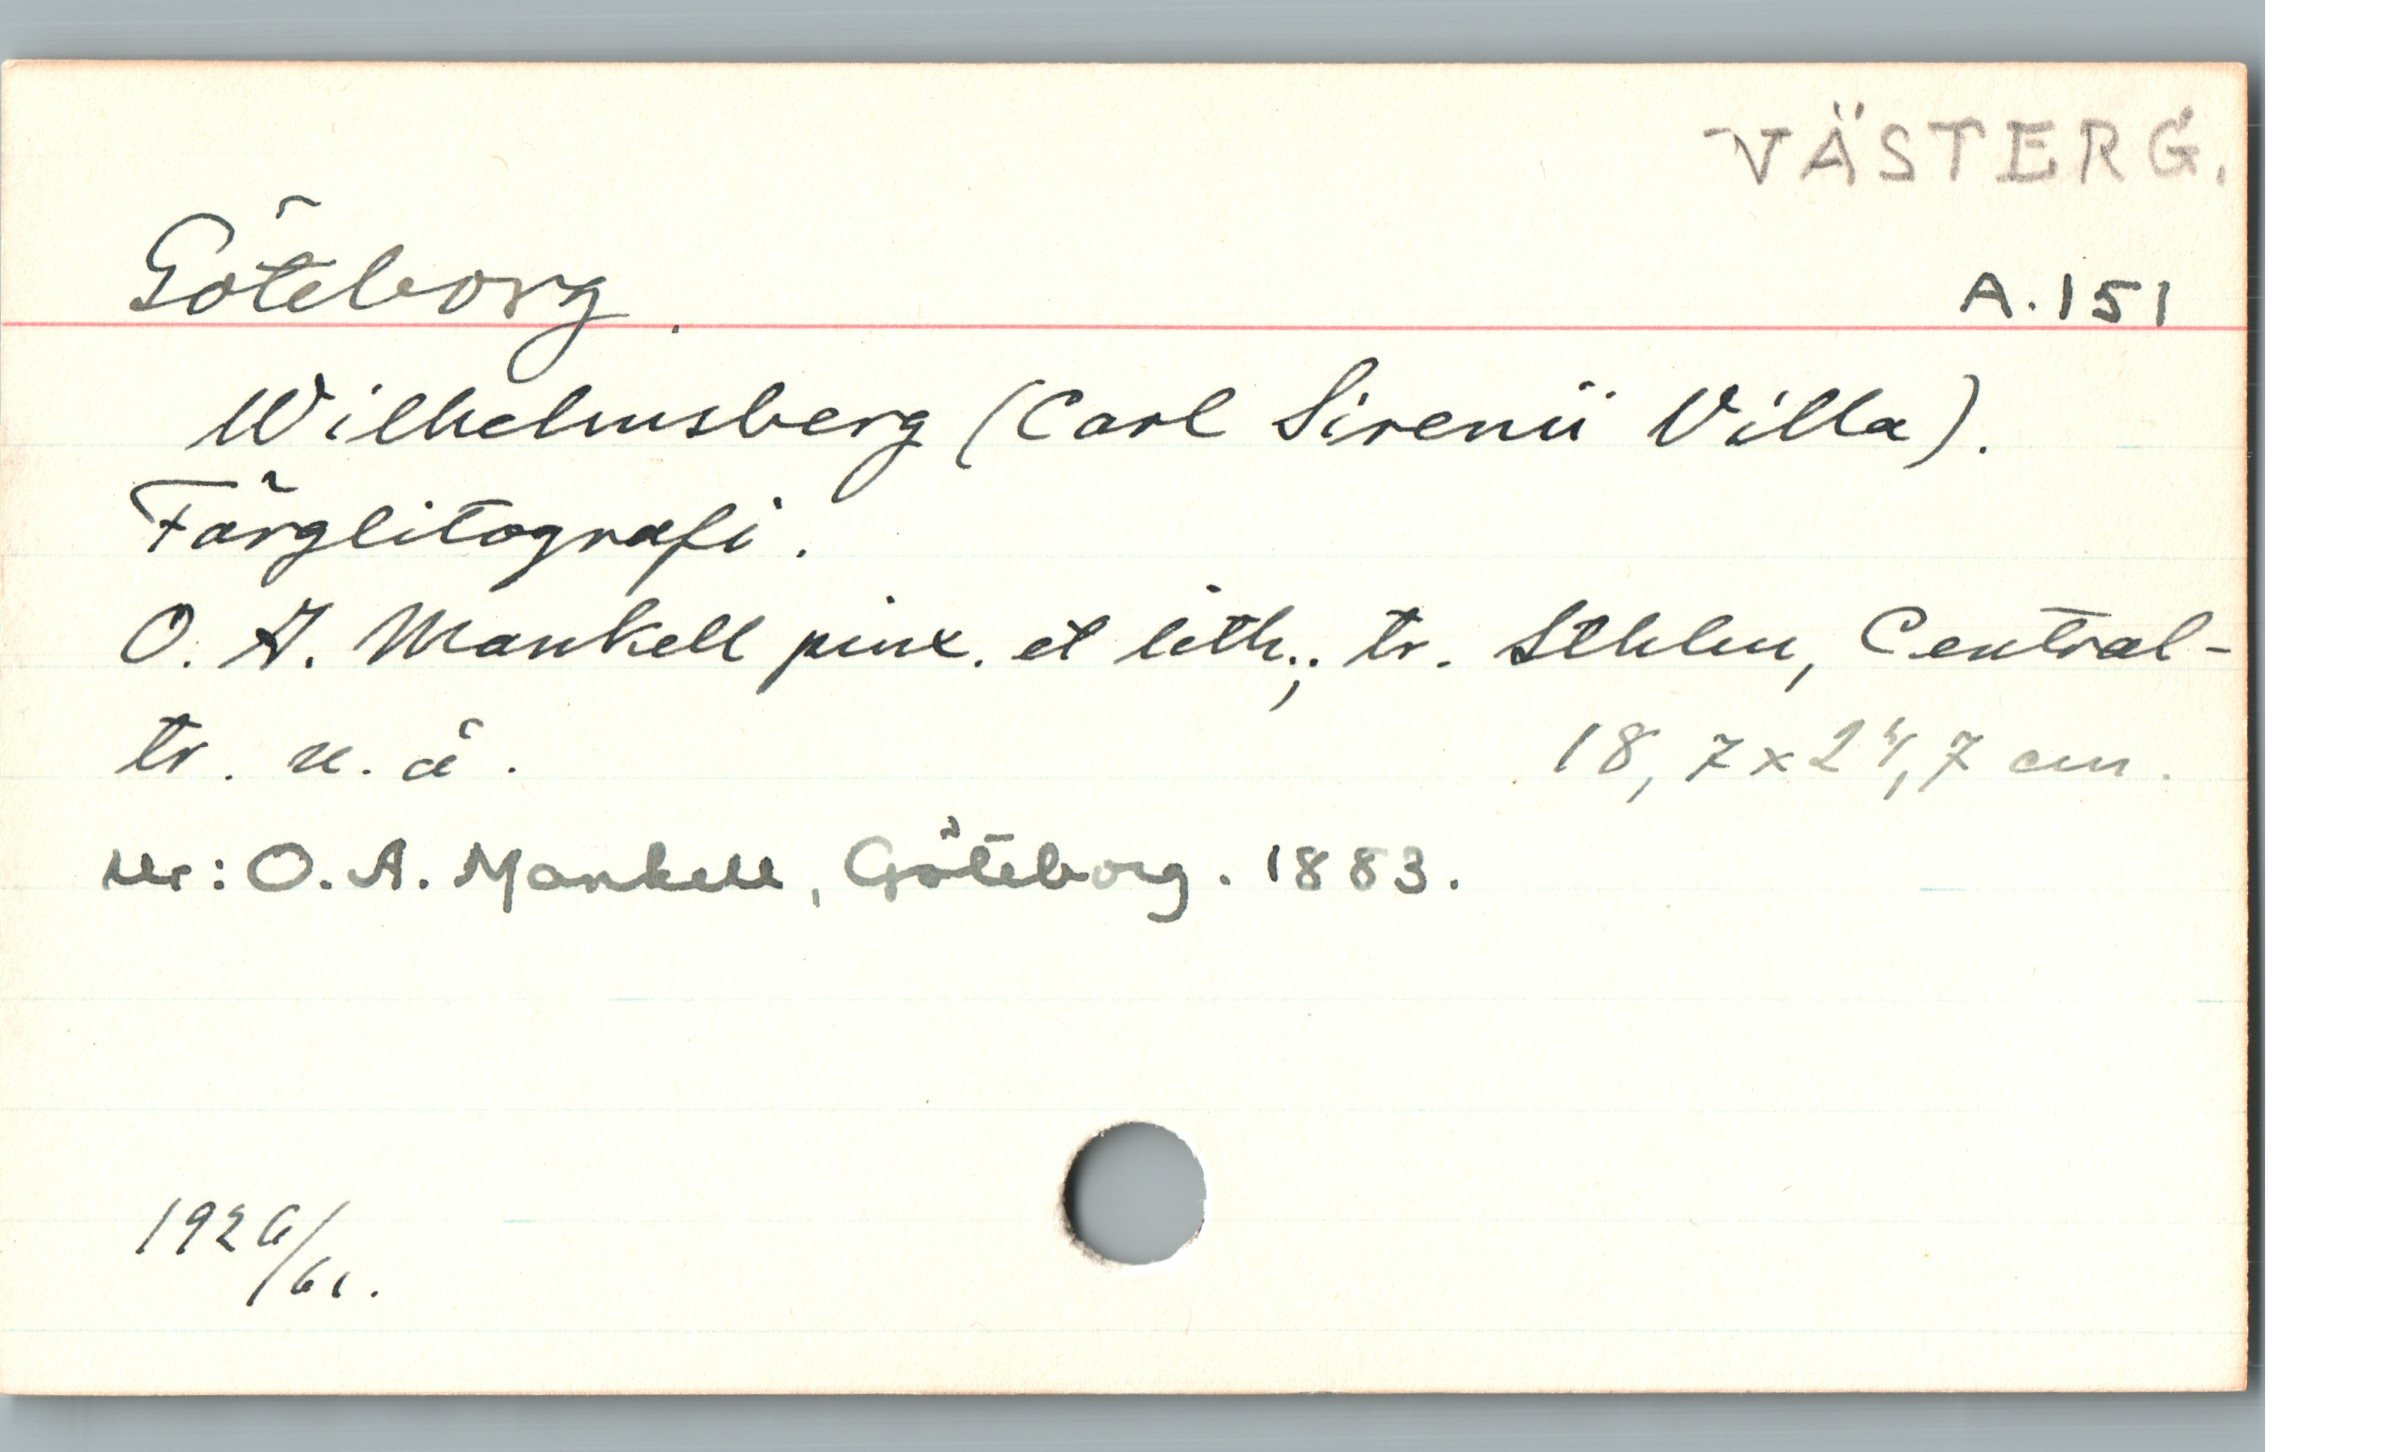 VÄSTERG.
Göteborg.
A.151
Wilhelmsberg (Carl Sirenii Villa).
Färglitografi.
O. A. Mankell pinx. et lith.; tr. Sthlm, Central-
tr. u. å.
18,7 x 24,7 cm.
Ur: O. A. Mankell, Göteborg. 1883.
1926/61.